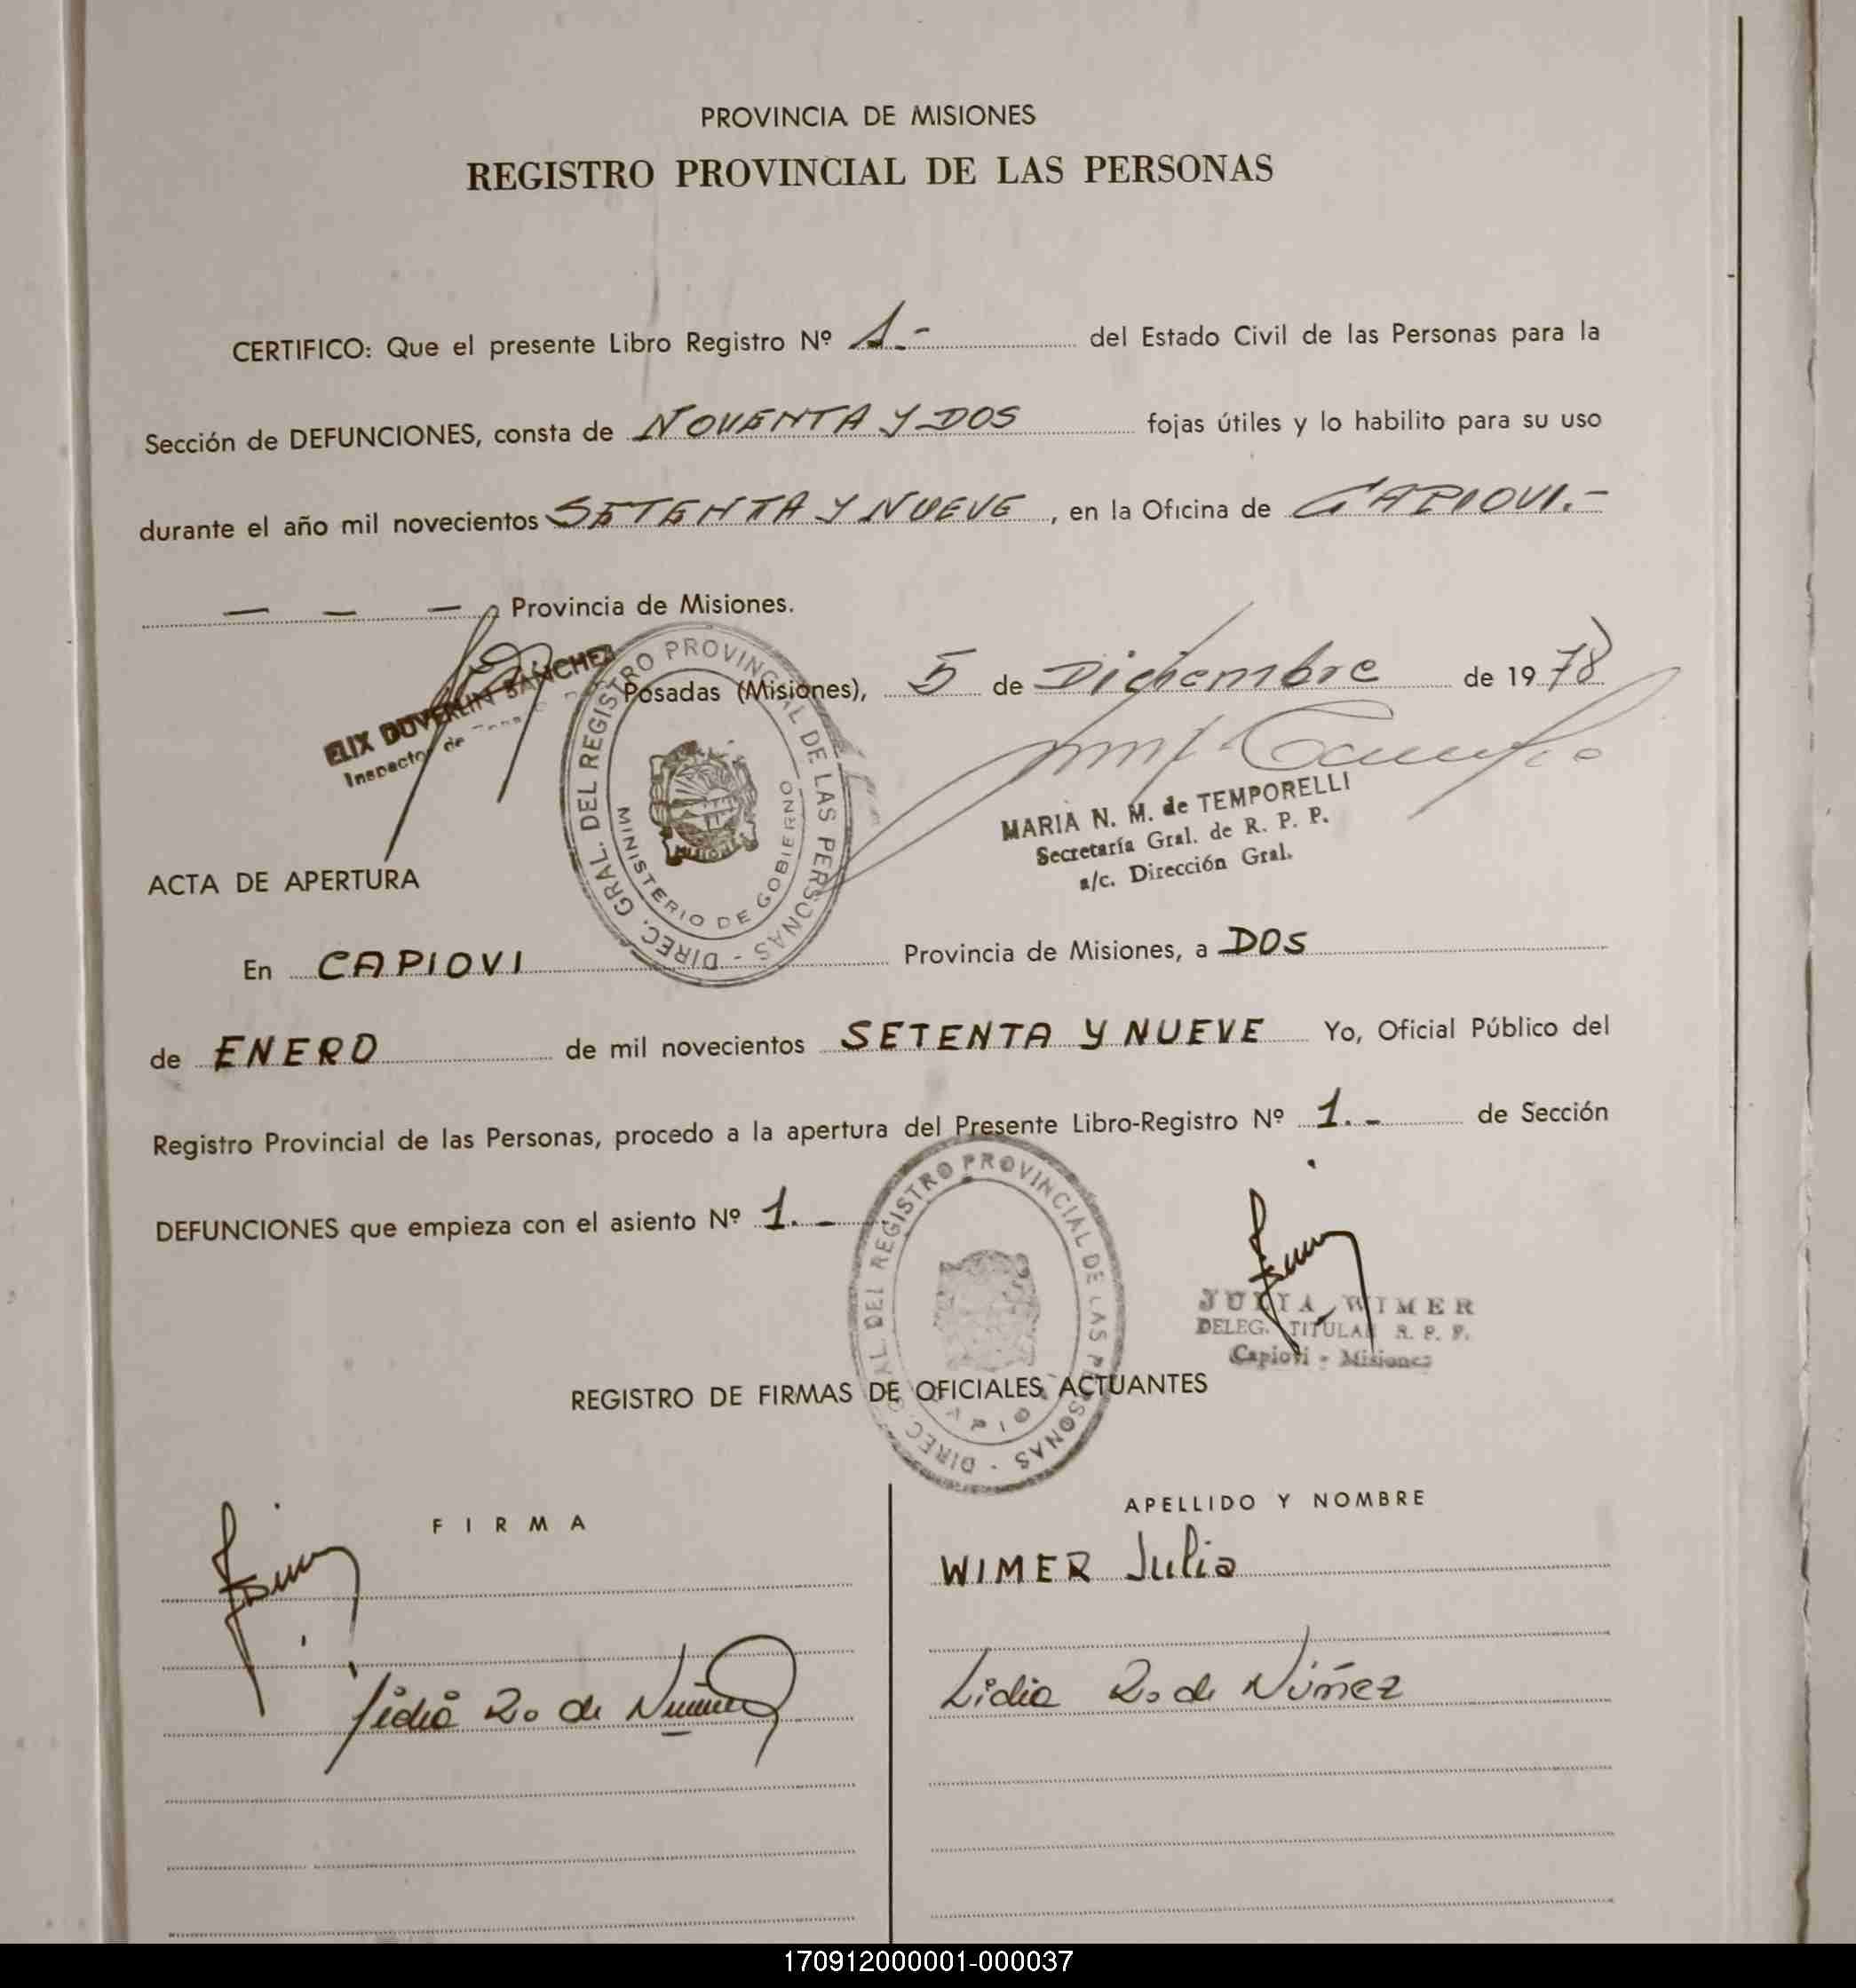 PROVINCIA DE MISIONES
REGISTRO PROVINCIAL DE LAS PERSONAS
CERTIFICO: Que el presente Libro Registro Nº 1.- del Estado Civil de las Personas para la
Sección de DEFUNCIONES, consta de NOVENTA Y DOS fojas útiles y lo habilito para su uso
durante el año mil novecientos SETENTA Y NUEVE, en la Oficina de CAPIOVI.-
— — — Provincia de Misiones.
Posadas (Misiones), 5 de Diciembre de 1978
ELIX DUVERLIN SANCHEZ
Inspector de
DIREC. GRAL. DEL REGISTRO PROVINCIAL DE LAS PERSONAS -
MINISTERIO DE GOBIERNO
MISIONES
MARIA N. M. de TEMPORELLI
Secretaría Gral. de R. P. P.
a/c. Dirección Gral.
ACTA DE APERTURA
En CAPIOVI Provincia de Misiones, a DOS
de ENERO de mil novecientos SETENTA Y NUEVE Yo, Oficial Público del
Registro Provincial de las Personas, procedo a la apertura del Presente Libro-Registro Nº 1.- de Sección
DEFUNCIONES que empieza con el asiento Nº 1.-
DIREC. GRAL. DEL REGISTRO PROVINCIAL DE LAS PERSONAS -
JULIA WIMER
DELEG. TITULAR R. P. P.
Capiovi - Misiones
REGISTRO DE FIRMAS DE OFICIALES ACTUANTES
FIRMA
APELLIDO Y NOMBRE
WIMER Julia
Lidia R. de Núñez
Lidia R. de Núñez
170912000001-000037